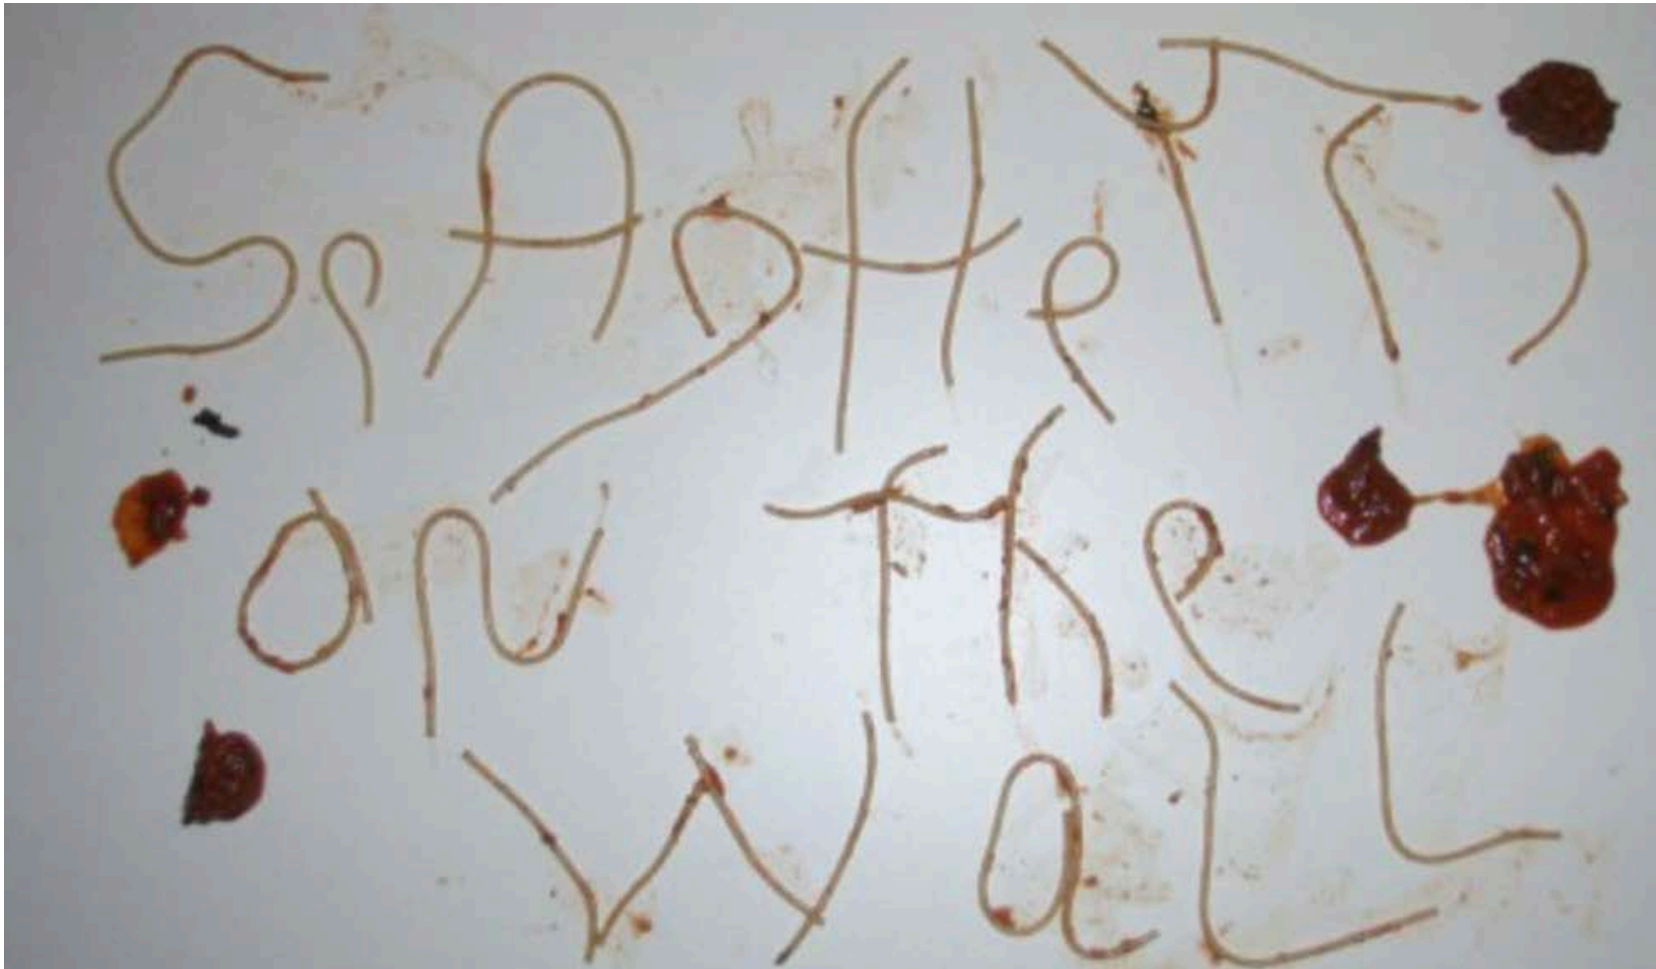 SpAgHeTTi
on the
wall